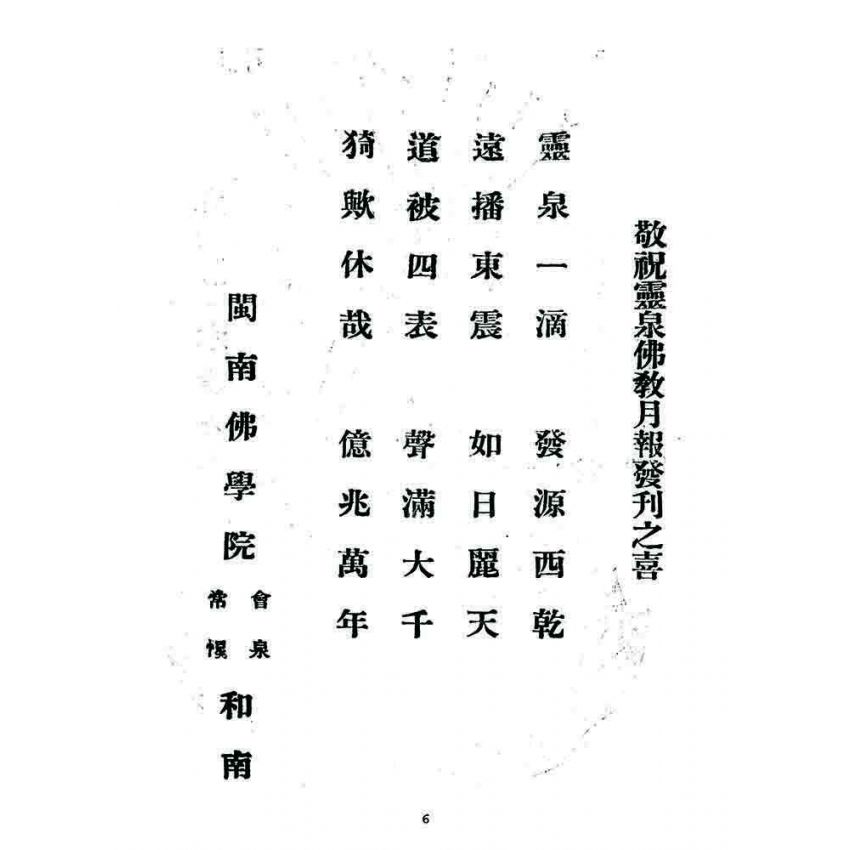 敬祝靈泉佛教月報發刊之喜
靈泉一滴 發源西乾
遠播東震 如日麗天
道被四表 聲滿大千
猗歟休哉 億兆萬年
閩南佛學院 會泉 常惺 和南
6